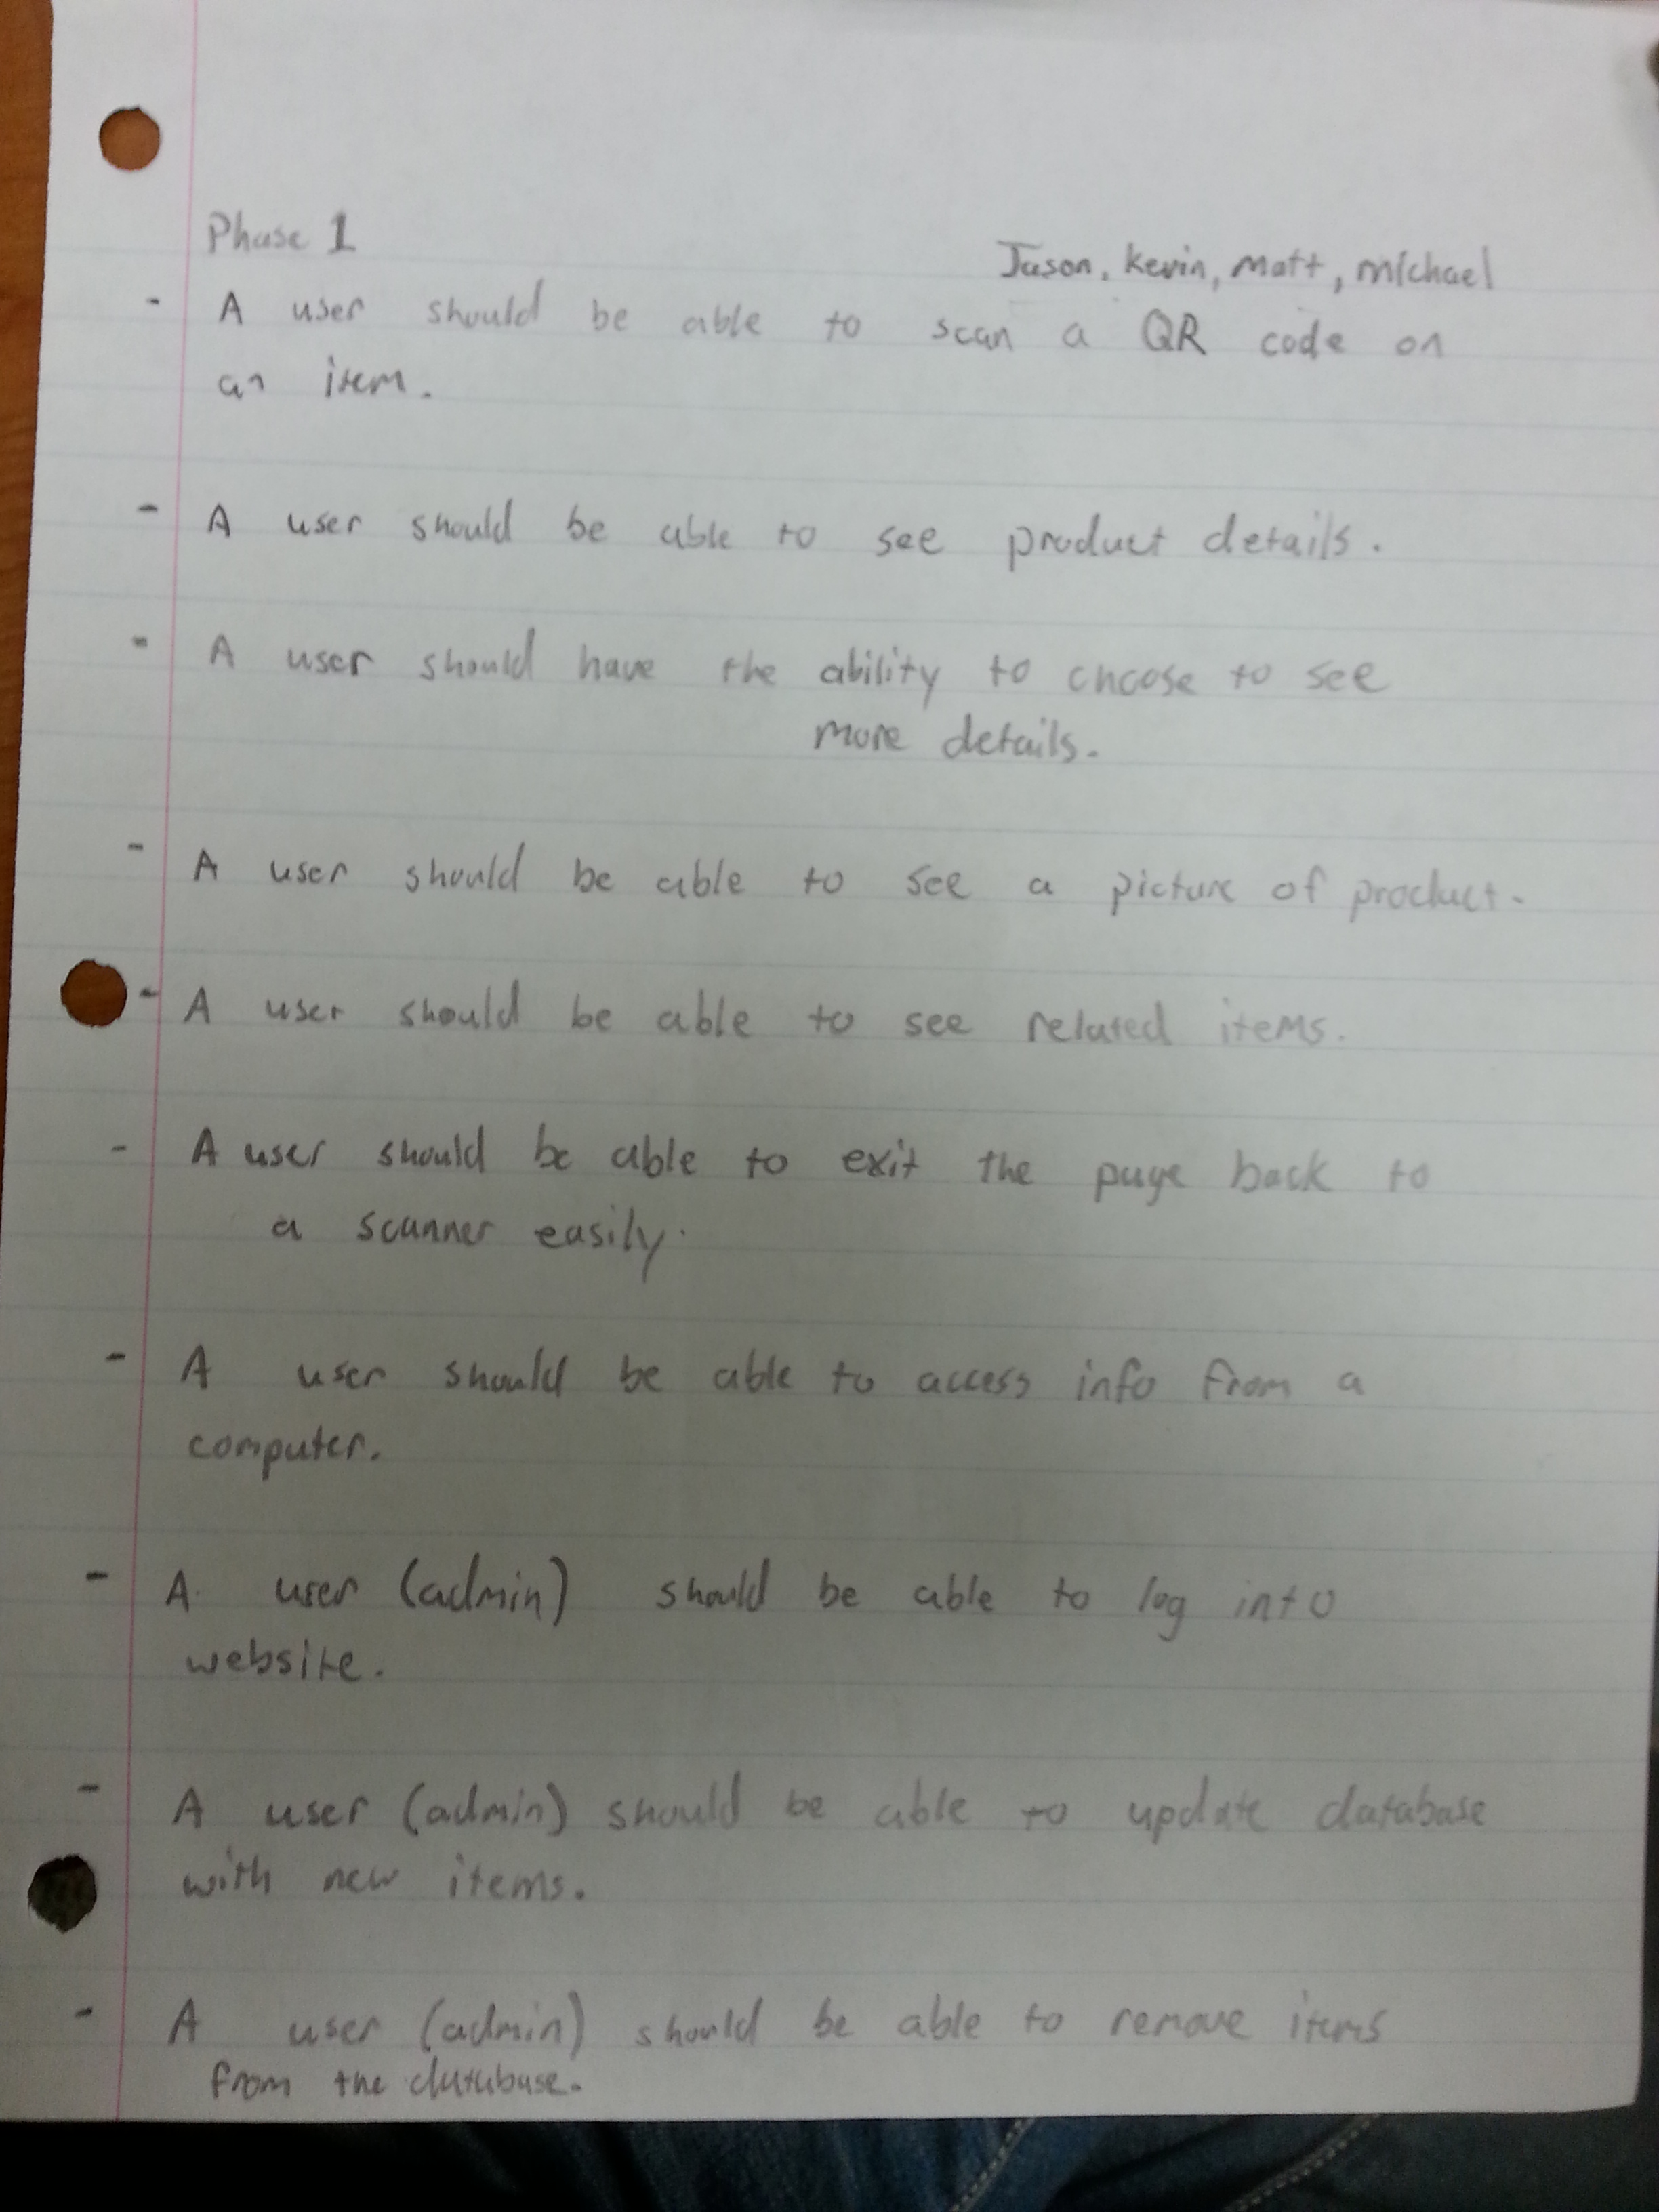 Phase 1
Jason, Kevin, Matt, Michael
- A user should be able to scan a QR code on
an item.
- A user should be able to see product details.
- A user should have the ability to choose to see
more details.
- A user should be able to see a picture of product.
- A user should be able to see related items.
- A user should be able to exit the page back to
a scanner easily.
- A user should be able to access info from a
computer.
- A user (admin) should be able to log into
website.
- A user (admin) should be able to update database
with new items.
- A user (admin) should be able to remove items
from the database.